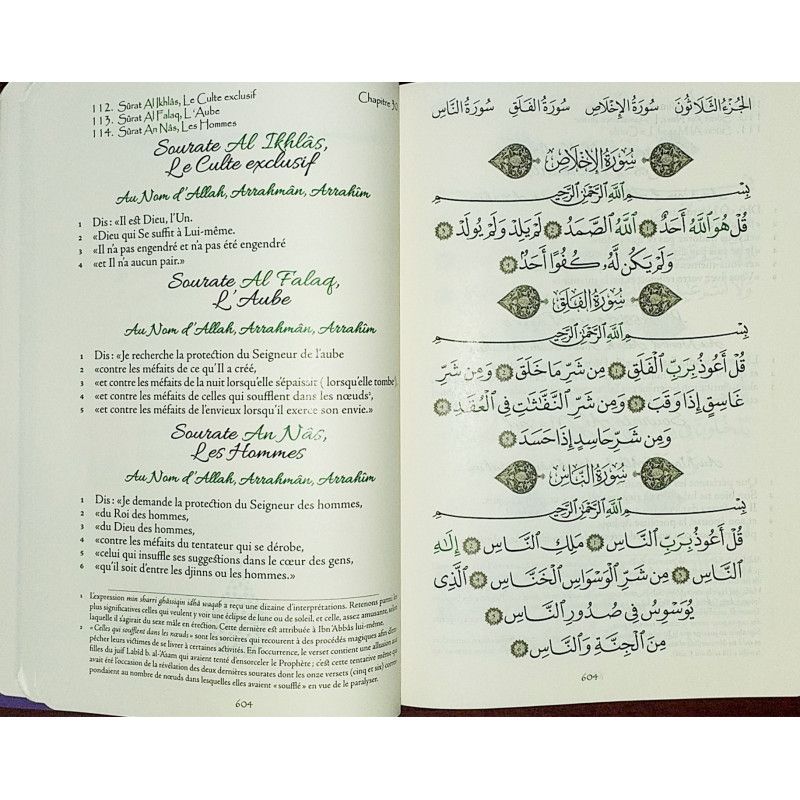 112. Sûrat Al Ikhlâs, Le Culte exclusif
113. Sûrat Al Falaq, L'Aube
114. Sûrat An Nâs, Les Hommes
Chapitre 30
Sourate Al Ikhlâs,
Le Culte exclusif
Au Nom d'Allah, Arrahmân, Arrahîm
1 Dis : «Il est Dieu, l'Un.
2 «Dieu qui Se suffit à Lui-même.
3 «Il n'a pas engendré et n'a pas été engendré
4 «et Il n'a aucun pair.»
Sourate Al Falaq,
L'Aube
Au Nom d'Allah, Arrahmân, Arrahîm
1 Dis : «Je recherche la protection du Seigneur de l'aube
2 «contre les méfaits de ce qu'Il a créé,
3 «et contre les méfaits de la nuit lorsqu'elle s'épaissit ( lorsqu'elle tombe¹).
4 «et contre les méfaits de celles qui soufflent dans les nœuds²,
5 «et contre les méfaits de l'envieux lorsqu'il exerce son envie.»
Sourate An Nâs,
Les Hommes
Au Nom d'Allah, Arrahmân, Arrahîm
1 Dis : «Je demande la protection du Seigneur des hommes,
2 «du Roi des hommes,
3 «du Dieu des hommes,
4 «contre les méfaits du tentateur qui se dérobe,
5 «celui qui insuffle ses suggestions dans le cœur des gens,
6 «qu'il soit d'entre les djinns ou les hommes.»
1 L'expression min sharri ghâssiqin idhâ waqab a reçu une dizaine d'interprétations. Retenons parmi les
plus significatives celles qui veulent y voir une éclipse de lune ou de soleil, et celle, assez amusante, selon
laquelle il s'agirait du sexe mâle en érection. Cette dernière est attribuée à Ibn 'Abbâs lui-même.
2 « Celles qui soufflent dans les nœuds» sont les sorcières qui recourent à des procédés magiques afin d'em-
pêcher leurs victimes de se livrer à certaines activités. En l'occurrence, le verset contient une allusion aux
filles du juif Labîd b. al-'Asam qui avaient tenté d'ensorceler le Prophète ; c'est cette tentative même qui
avait été l'occasion de la révélation des deux dernières sourates dont les onze versets (cinq et six) corres-
pondaient au nombre de nœuds dans lesquelles elles avaient « soufflé » en vue de le paralyser.
604
الجُزْءُ الثَّلَاثُونَ سُورَةُ الإِخْلَاصِ سُورَةُ الفَلَقِ سُورَةُ النَّاسِ
سُورَةُ الإِخْلَاصِ
بِسْمِ ٱللَّهِ ٱلرَّحْمَٰنِ ٱلرَّحِيمِ
قُلْ هُوَ ٱللَّهُ أَحَدٌ ۝١ ٱللَّهُ ٱلصَّمَدُ ۝٢ لَمْ يَلِدْ وَلَمْ يُولَدْ ۝٣
وَلَمْ يَكُن لَّهُۥ كُفُوًا أَحَدٌۢ ۝٤
سُورَةُ الفَلَقِ
بِسْمِ ٱللَّهِ ٱلرَّحْمَٰنِ ٱلرَّحِيمِ
قُلْ أَعُوذُ بِرَبِّ ٱلْفَلَقِ ۝١ مِن شَرِّ مَا خَلَقَ ۝٢ وَمِن شَرِّ
غَاسِقٍ إِذَا وَقَبَ ۝٣ وَمِن شَرِّ ٱلنَّفَّٰثَٰتِ فِي ٱلْعُقَدِ ۝٤
وَمِن شَرِّ حَاسِدٍ إِذَا حَسَدَ ۝٥
سُورَةُ النَّاسِ
بِسْمِ ٱللَّهِ ٱلرَّحْمَٰنِ ٱلرَّحِيمِ
قُلْ أَعُوذُ بِرَبِّ ٱلنَّاسِ ۝١ مَلِكِ ٱلنَّاسِ ۝٢ إِلَٰهِ
ٱلنَّاسِ ۝٣ مِن شَرِّ ٱلْوَسْوَاسِ ٱلْخَنَّاسِ ۝٤ ٱلَّذِى
يُوَسْوِسُ فِي صُدُورِ ٱلنَّاسِ ۝٥
مِنَ ٱلْجِنَّةِ وَٱلنَّاسِ ۝٦
604